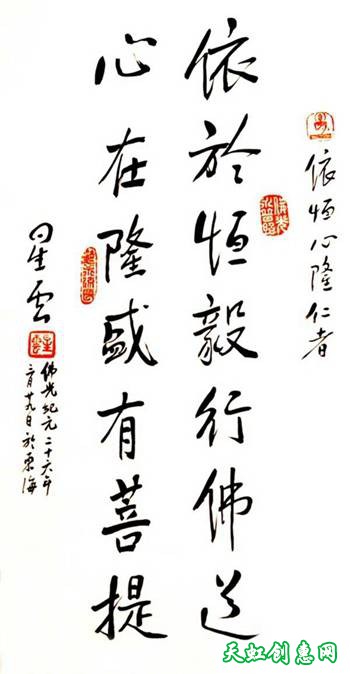 依恒心隆仁者
依於恒毅行佛道
心在隆盛有菩提
星雲
星雲
佛光紀元二十六年
月廿九日於東海
天虹创意网